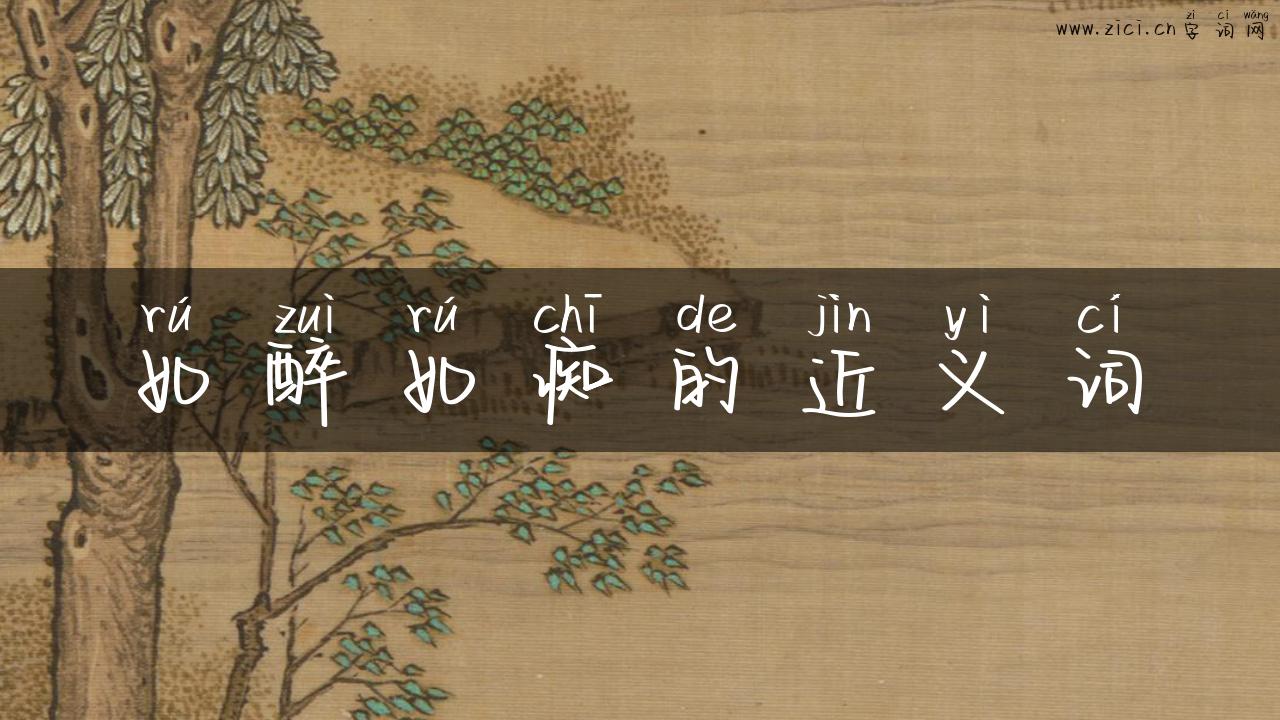 zì cí wǎng
www.zici.cn字词网
rú zuì rú chī de jìn yì cí
如醉如痴的近义词